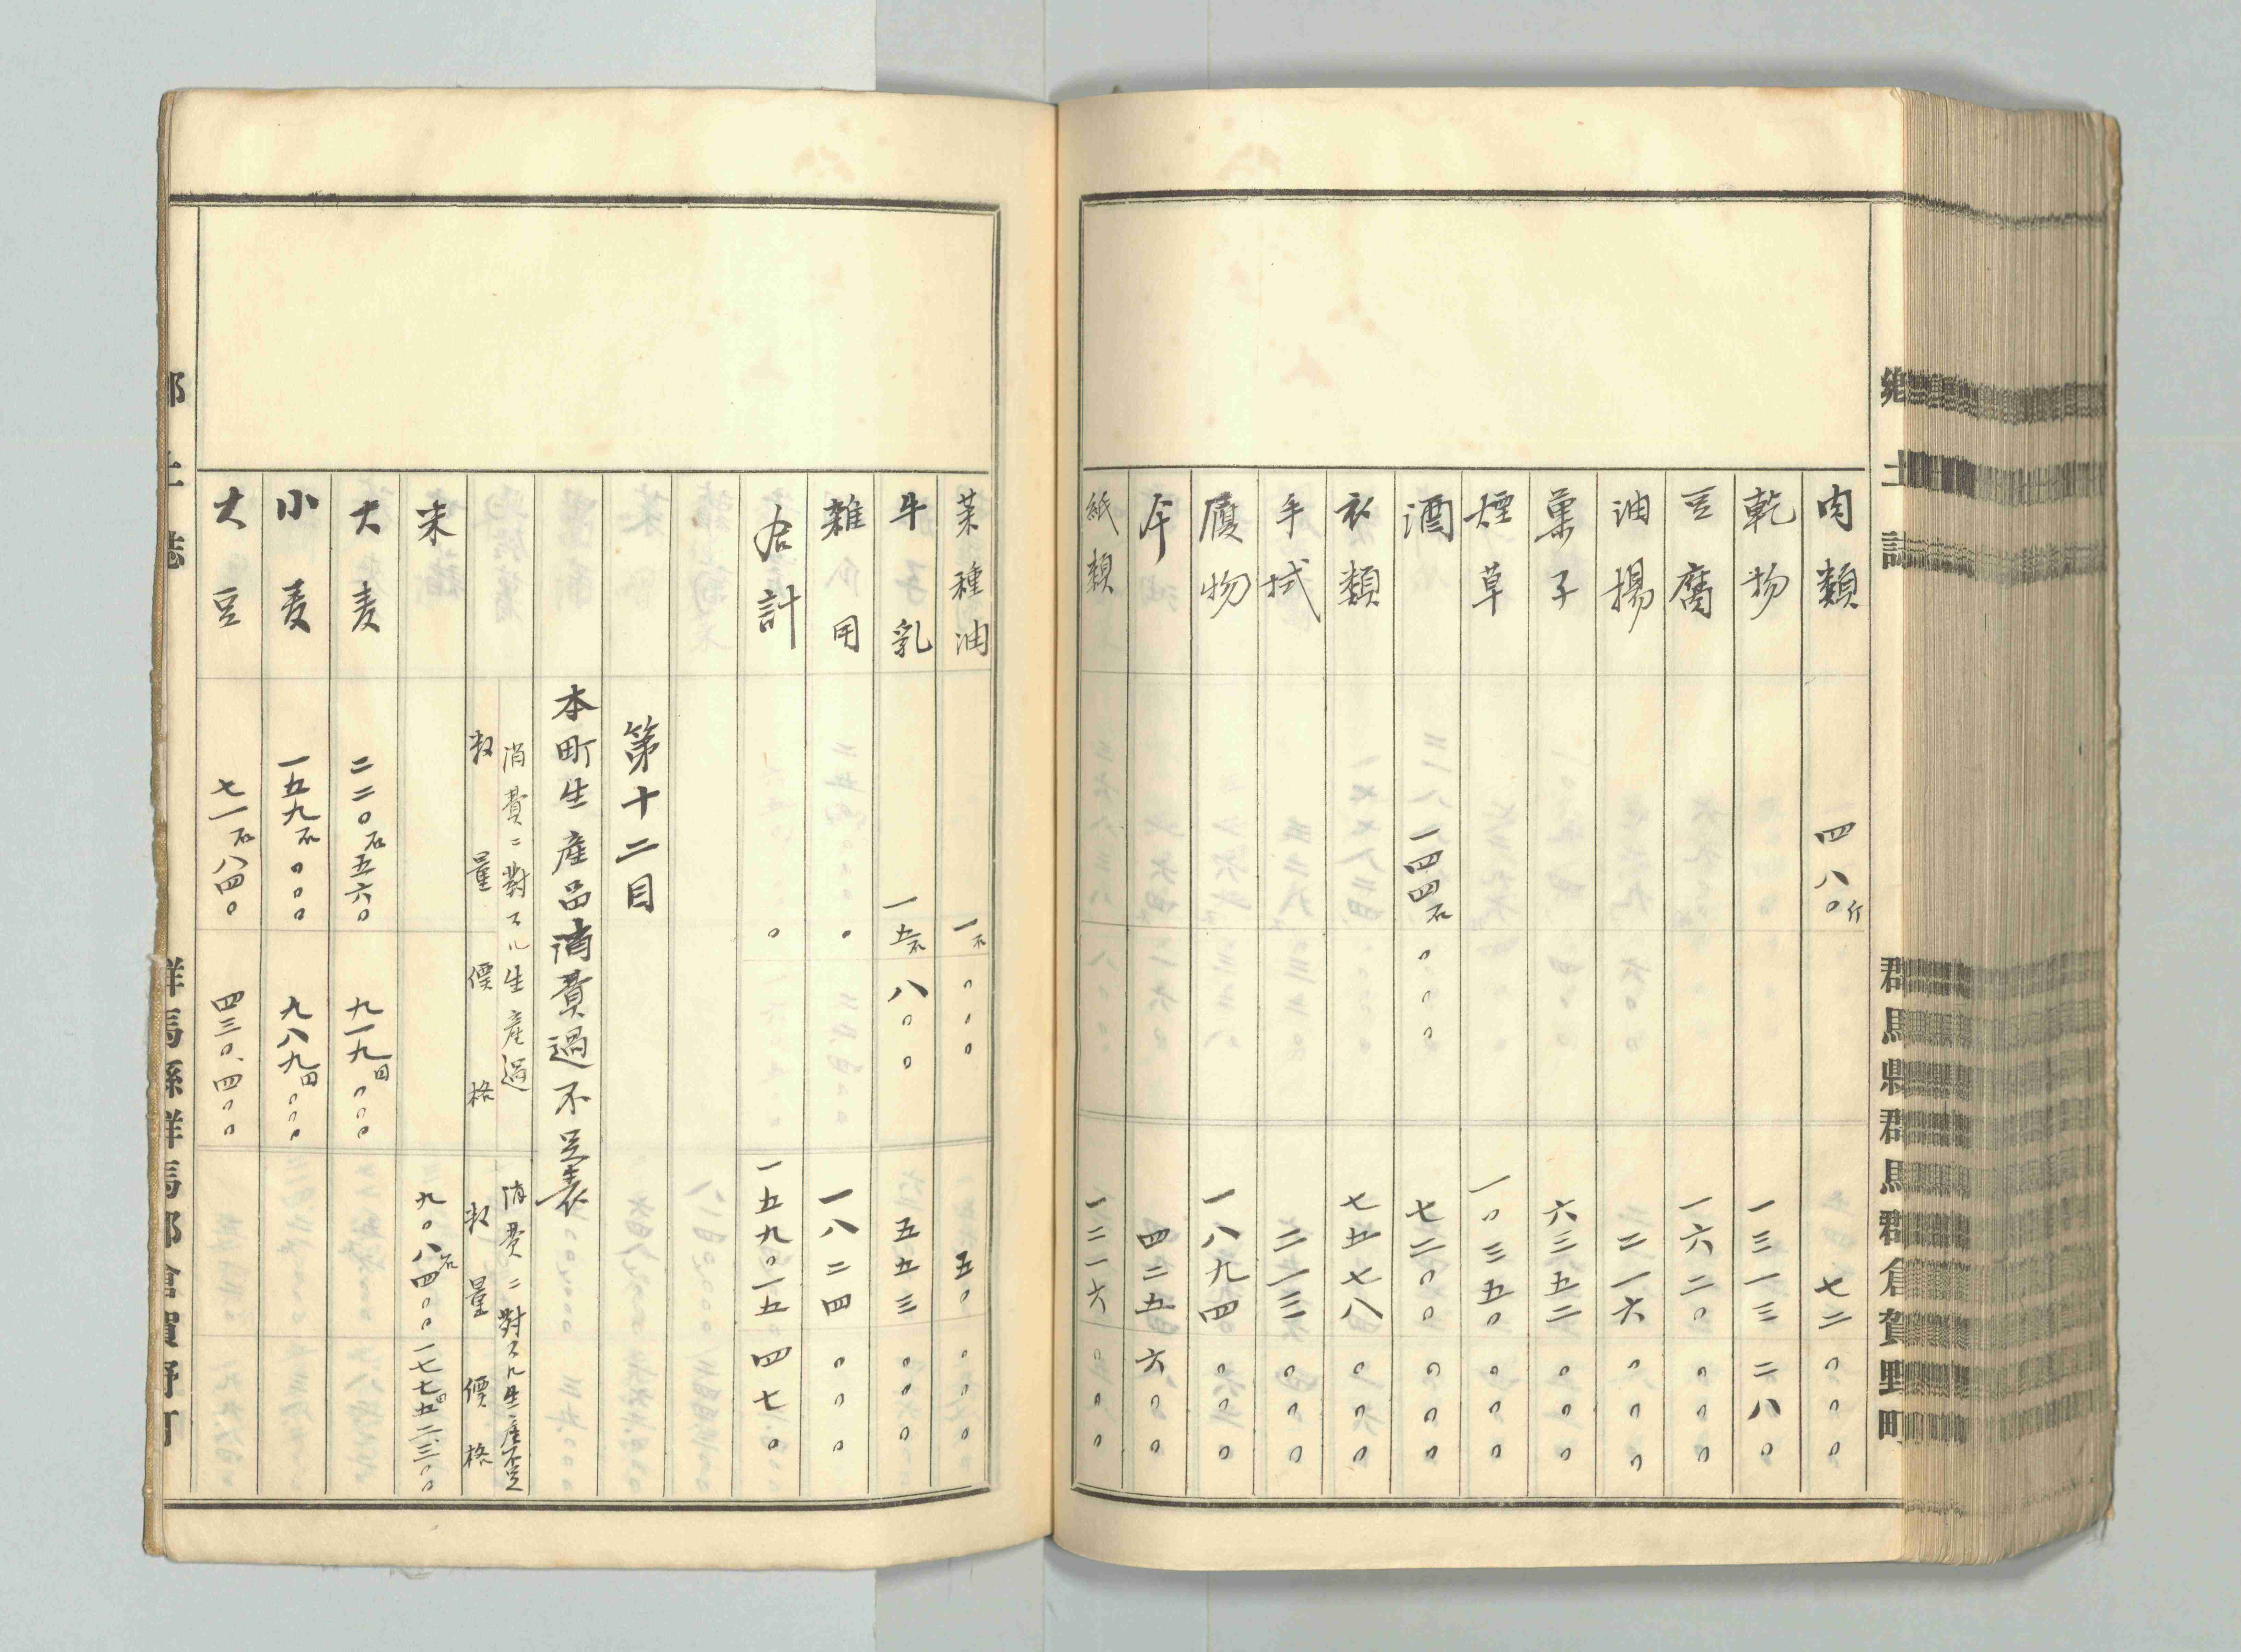 郷土誌 群馬県群馬郡倉賀野町
肉類 四八〇斤 七二〇〇〇
乾物 一三一三二八〇
豆腐 一六二〇〇〇〇
油揚 二一六〇〇〇
菓子 六三五二〇〇〇
煙草 一〇三五〇〇〇〇
酒 一四四石〇〇〇 七二〇〇〇〇〇
衣類 七五七八〇〇〇
手拭 二一三〇〇〇
履物 一八九四〇〇〇
四二五六〇〇
紙類 一三一六〇〇〇
菜種油 一石〇〇〇 五〇〇〇〇
牛乳 一五石八〇〇 五五三〇〇〇
雑用 〇 一八二四〇〇〇
合計 〇 一五九〇一五四七〇
第十二目
本町生産品消費過不足表
消費ニ對スル生産過 消費ニ對スル生産不足
数量 價格 数量 價格
米 九〇八石四〇〇 一七七五二.三〇〇
大麦 二二〇石五六〇 九一九円〇〇〇
小麦 一五九石〇〇〇 九八九円〇〇〇
大豆 七一石八四〇 四三〇、四〇〇